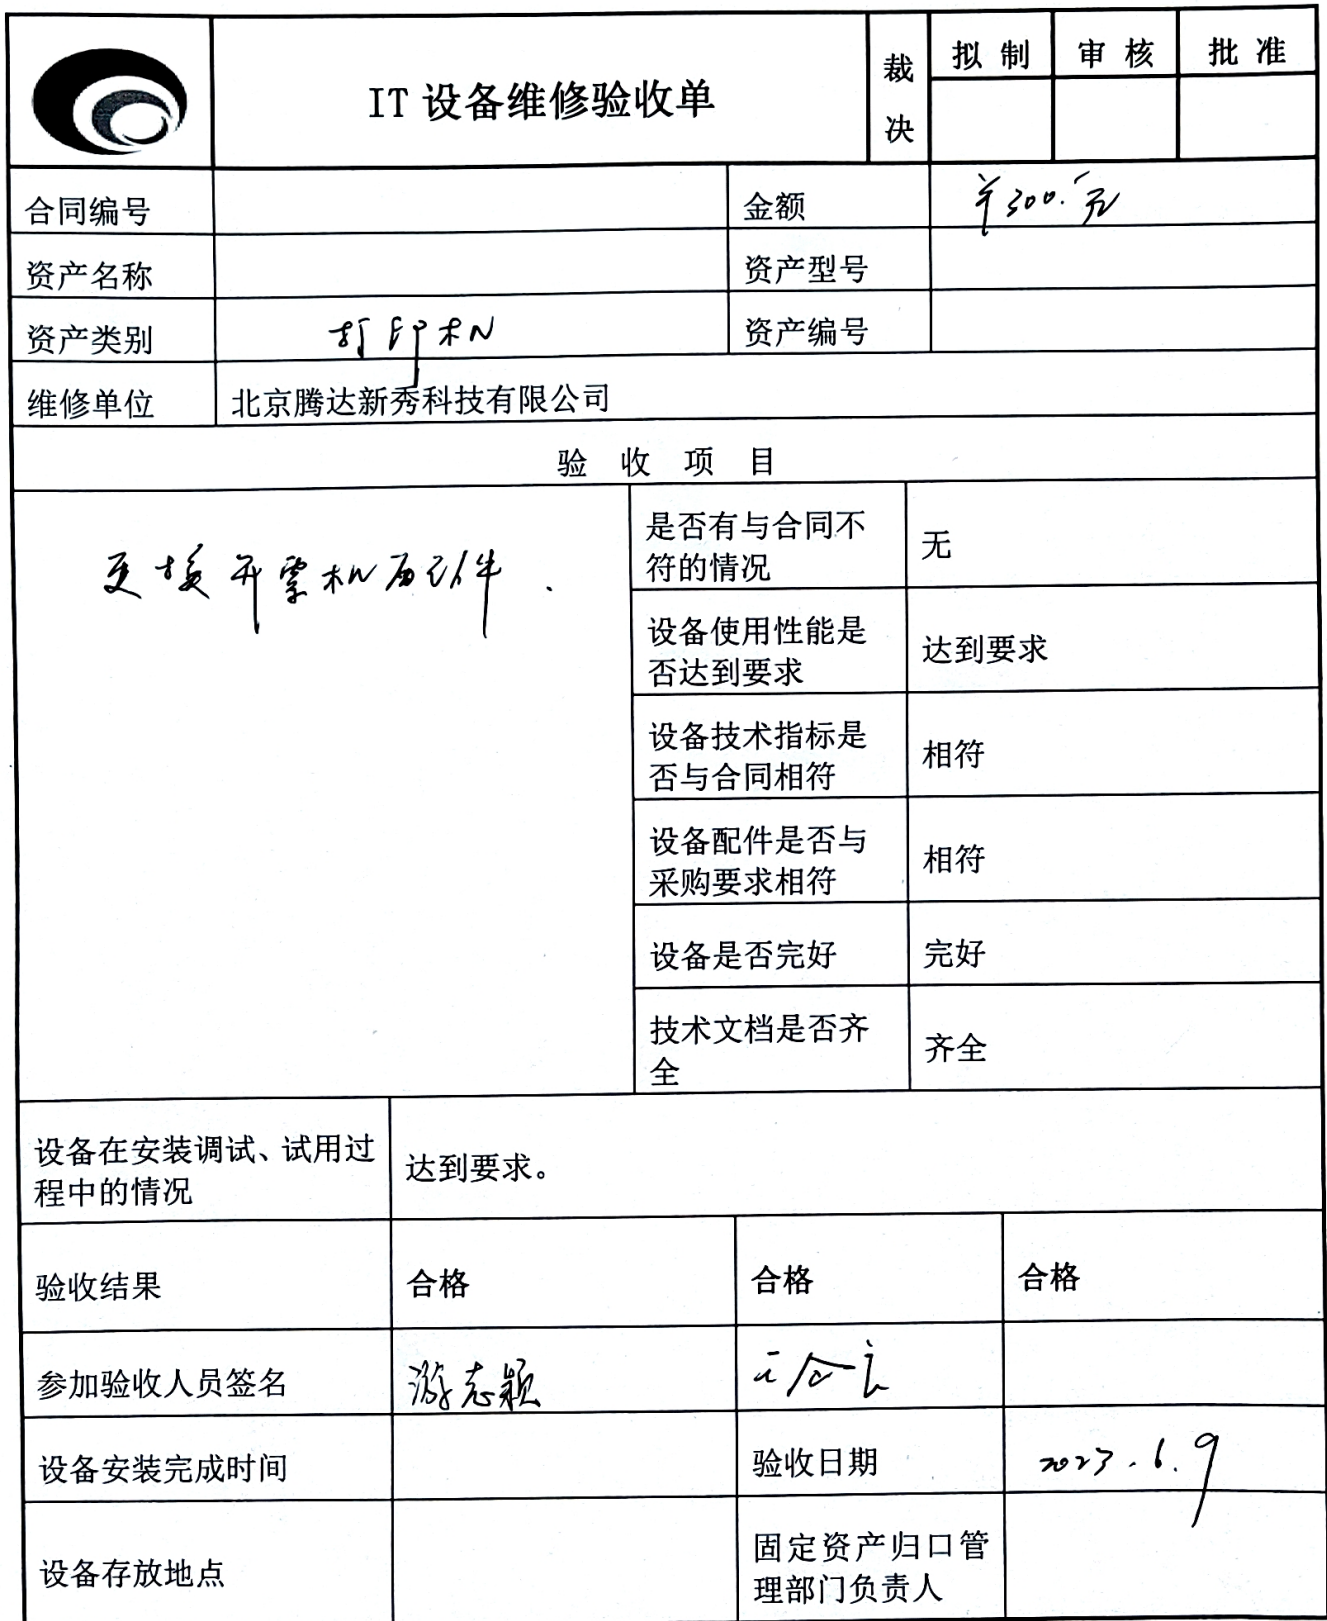 IT设备维修验收单
裁决
拟制
审核
批准
合同编号
金额
¥300.元
资产名称
资产型号
资产类别
打印机
资产编号
维修单位
北京腾达新秀科技有限公司
验收项目
更换开票机配件.
是否有与合同不
符的情况
无
设备使用性能是
否达到要求
达到要求
设备技术指标是
否与合同相符
相符
设备配件是否与
采购要求相符
相符
设备是否完好
完好
技术文档是否齐
全
齐全
设备在安装调试、试用过
程中的情况
达到要求。
验收结果
合格
合格
合格
参加验收人员签名
游志颖
设备安装完成时间
验收日期
2023.6.9
设备存放地点
固定资产归口管
理部门负责人